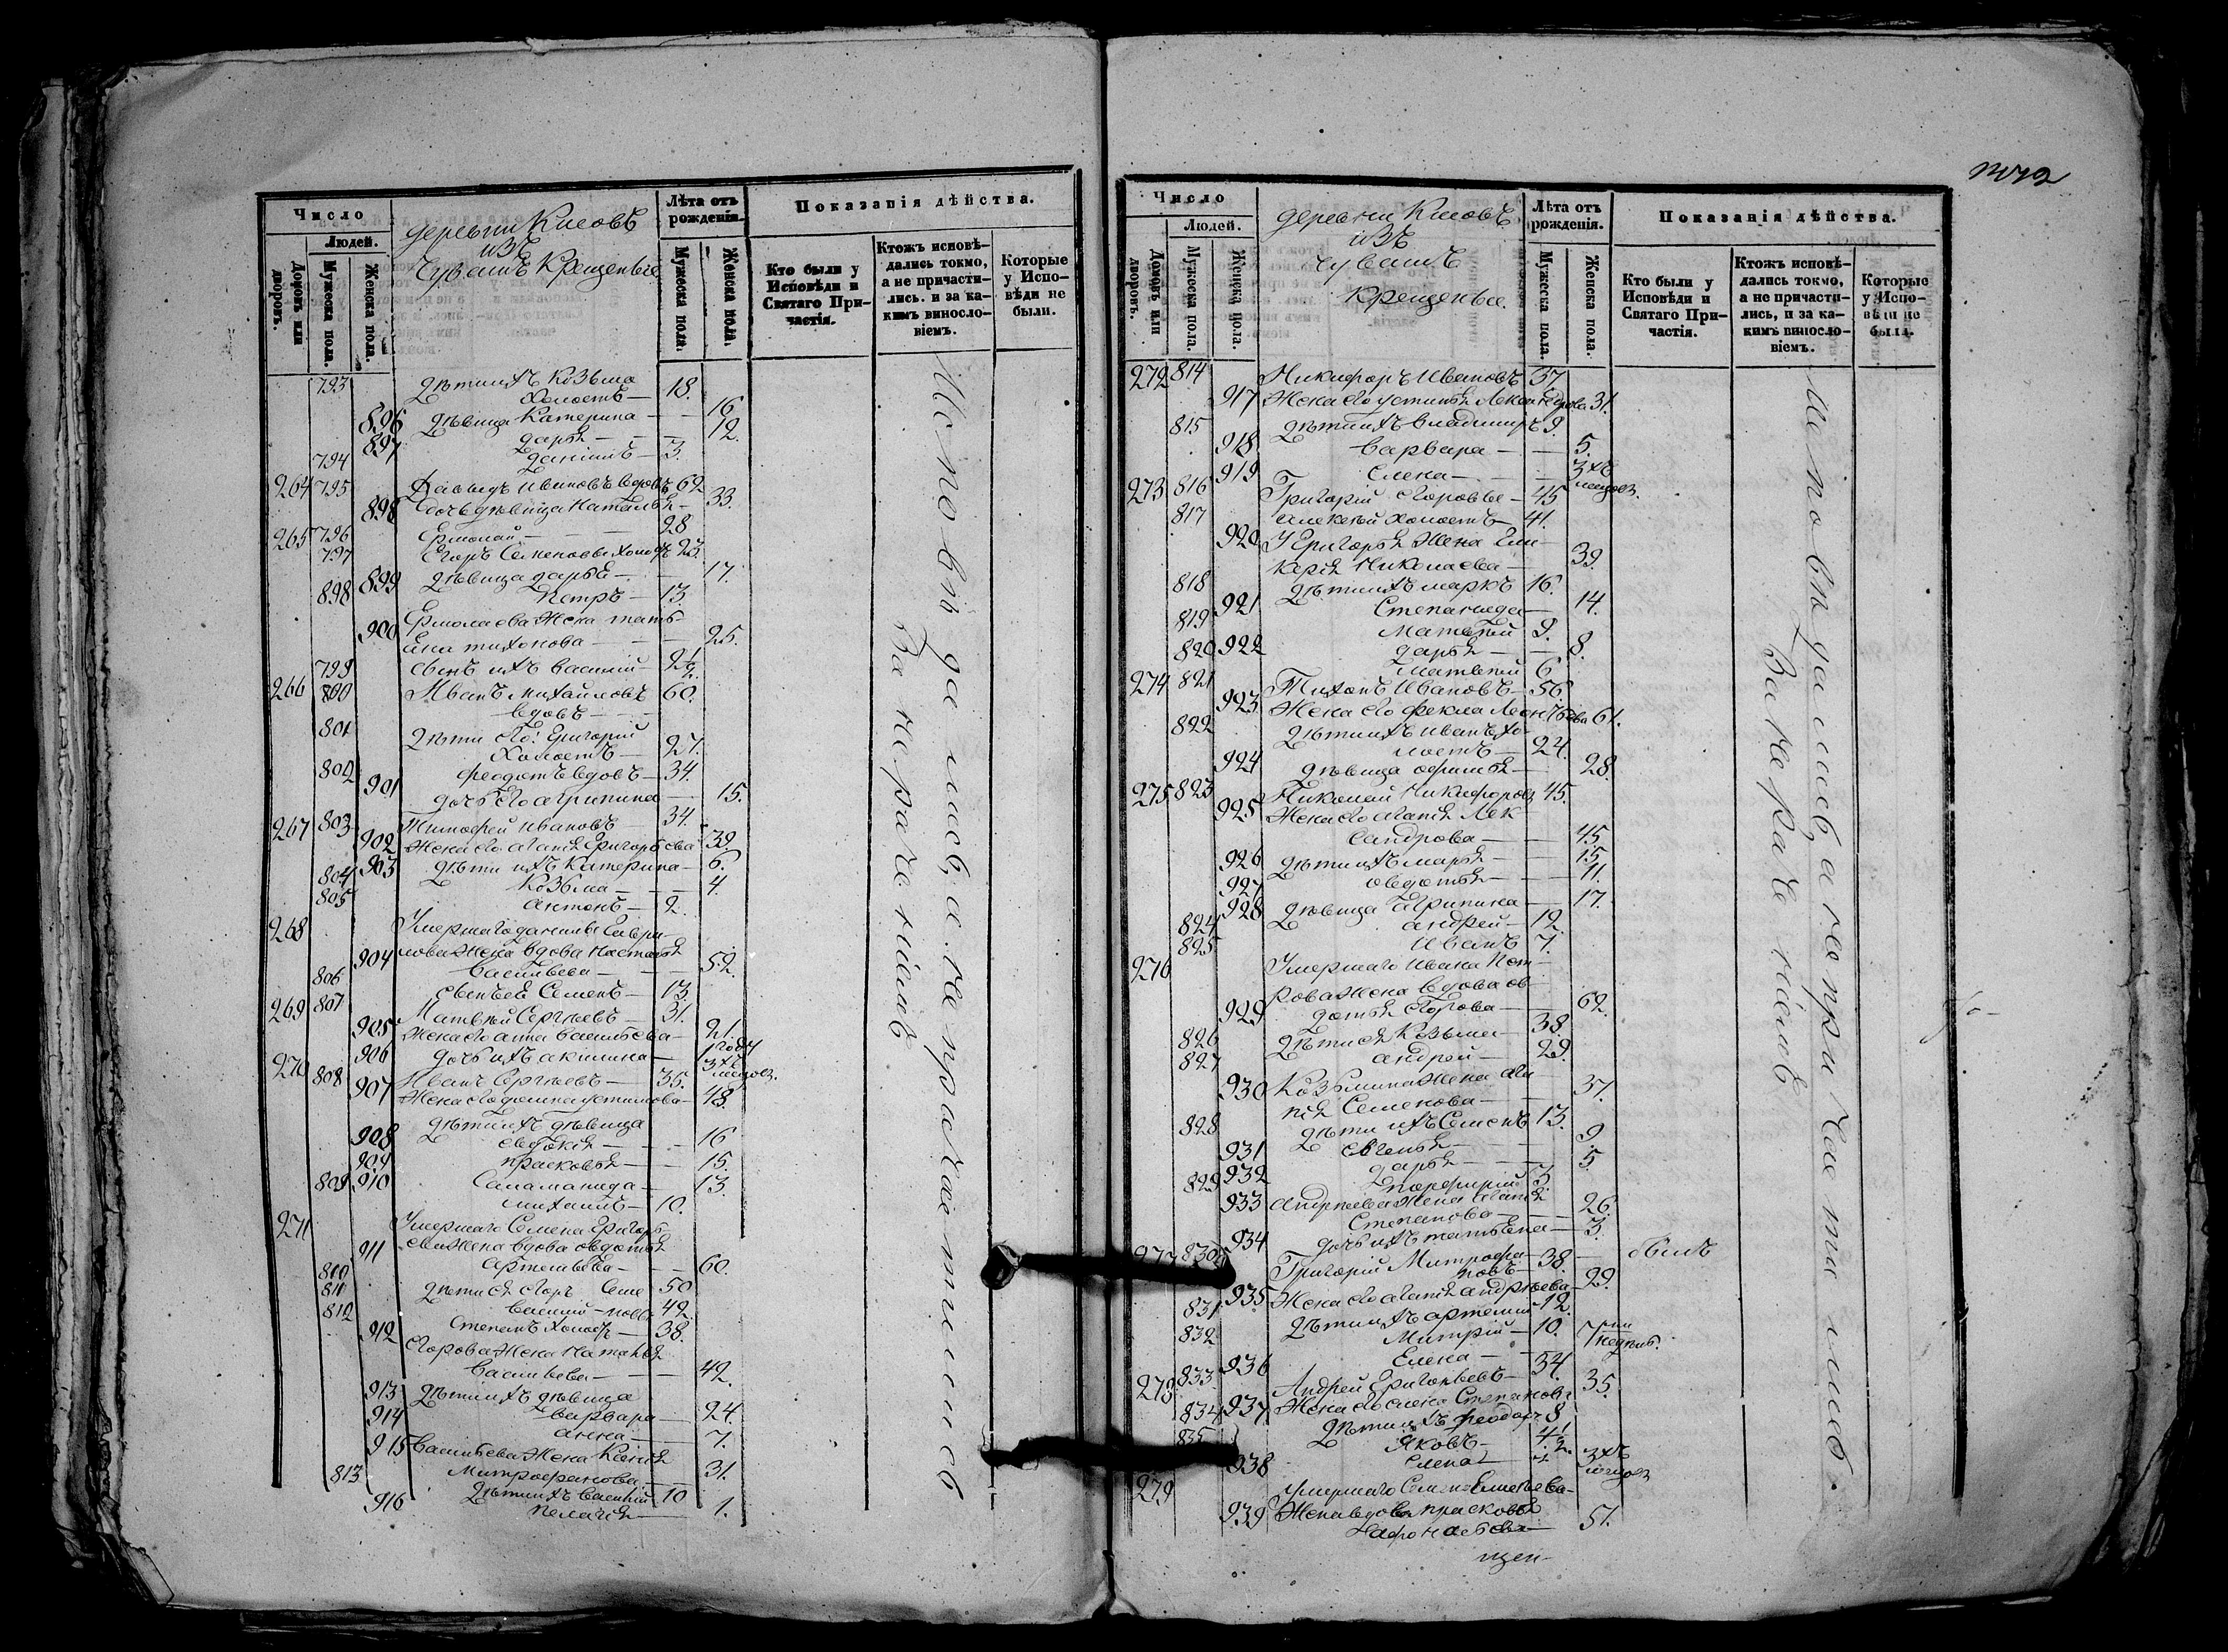 Число
Людей.
Домовъ или дворовъ.
Мужеска пола.
Женска пола.
деревни Киеовъ
изъ
Чувашъ Крещеные
Лѣта отъ рожденія.
Мужеска пола.
Женска пола.
Показанія дѣйства.
Кто были у Исповѣди и Святаго Причастія.
Ктожъ исповѣдались токмо, а не причастились. и за какимъ винословіемъ.
Которые у Исповѣди не были.
793 дѣти ихъ Козьма
Холостъ — 18.
896 дѣвица Катерина — — 16
897 дарья — — 12.
794 данiилъ — 3.
264 795 Давыдъ Ивановъ вдовъ 62
898 дочь дѣвица Наталья — 33.
265 796 Ермолай — — 28
797 Егоръ Семеновы холостъ 23.
899 дѣвица дарья — — 17.
898 Петръ — 13.
900 Ермолаева жена Тать-
яна тихонова — — 25.
799 сынъ ихъ василий — 2 1/2
266 800 Иванъ Михайловъ 60.
вдовъ — —
801 дѣти его: Григорий
Холостъ — 27.
802 феодотъ вдовъ — 34.
901 дочь его агрипина — 15.
267 803 Тимофей Ивановъ — 34.
902 Жена его агапья Григорьева 39.
903 дѣти ихъ Катерина — 6.
804 Козьма — — 4.
805 антонъ — 2.
268 Умершаго данилы Гаври-
904 лова жена вдова Настасья
Васильева — — 52.
806 сынъ ея Семенъ — 13.
269 807 Матвей Сергѣевъ — 31.
905 Жена его анна Васильева — 21.
906 дочь ихъ акилина — 1 году 3хъ месяцов.
270 808 Иванъ Сергѣевъ — 35.
907 Жена его домна устинова — 48.
908 дѣти ихъ дѣвица
евдокия — — 16
909 прасковья — — 15.
809 910 Саламанида — 13.
михаилъ — 10.
271 Умершаго Семена Григорь-
911 ева жена вдова овдотья
Артемьева — — 60.
810 дѣти ея Егоръ Семе 50
811 василий — новы 42.
812 Степанъ холостъ — 38.
912 Егорова жена Наталья
Васильева — — 42.
913 дѣти ихъ дѣвица
варвара — 24.
914 анна — 7.
915 Васильева жена Ксенья
Митрофанова — 31.
813 дѣти ихъ василий 10
916 Пелагея — 1.
Исповѣдались, а не причастились
За нераченіемъ
Число
Людей.
Домовъ или дворовъ.
Мужеска пола.
Женска пола.
деревни Киеовъ
изъ
чувашъ
Крещеные.
Лѣта отъ рожденія.
Мужеска пола.
Женска пола.
Показанія дѣйства.
Кто были у Исповѣди и Святаго Причастія.
Ктожъ исповѣдались токмо, а не причастились, и за какимъ винословіемъ.
Которые у Исповѣди не были.
272 814 Никифоръ Ивановъ 37.
917 Жена его устинья Лександрова 31.
815 дѣти ихъ владимиръ 9.
918 варвара — — 5.
919 Елена — — 3хъ месяцов.
273 816 Григорий Егоровы — 45
817 алексѣй холостъ — 41.
920 У Григорья жена Гли-
керья Николаева — 39.
818 дѣти ихъ маркъ 16.
921 Степанида — 14.
819 Матвѣй 9.
820 922 дарья — — 8.
матвѣй 6
274 821 Тихонъ Ивановъ — 56.
923 Жена его фекла Леонтьева 61.
822 дѣти ихъ иванъ хо-
лостъ — 24.
924 дѣвица офимья — 28.
275 823 Николай Никифоровъ 45.
925 Жена его агапья Лек-
сандрова — — 45.
926 дѣти ихъ марья — 15.
927 овдотья — — 11.
928 дѣвица Агрипина — 17.
824 андрей — 12.
825 иванъ 7.
276 Умершаго Ивана Пет-
929 рова жена вдова ов-
дотья Егорова — 62.
826 дѣти ея Козьма — 38.
827 андрей — 29.
930 Козьмина жена ага-
пья Семенова — — 37.
828 дѣти ихъ Семенъ 13.
931 евгенья — 9.
932 дарья — — 5
829 порфирий 3.
933 андреева жена агапья
Степанова — — 26.
934 дочь ихъ татьяна — 3.
277 830 Григорий Митрофа-
новъ — 38. — былъ
935 Жена его агапья андрѣева — 29.
831 дѣти ихъ артемий 12.
832 Митрий — 10.
936 Елена — 7ми недѣль.
278 833 Андрей Григорьевъ — 34.
937 Жена его елена Степанова 35.
834 дѣти ихъ феодоръ 8
835 Яковъ — 4 1/2.
938 Елена — 3хъ месяцов
279 умершаго Семена Елисеева
939 Жена вдова прасковья
Афонасьева — 57.
Исповѣдались а не причастились.
За нераченіемъ
щен-